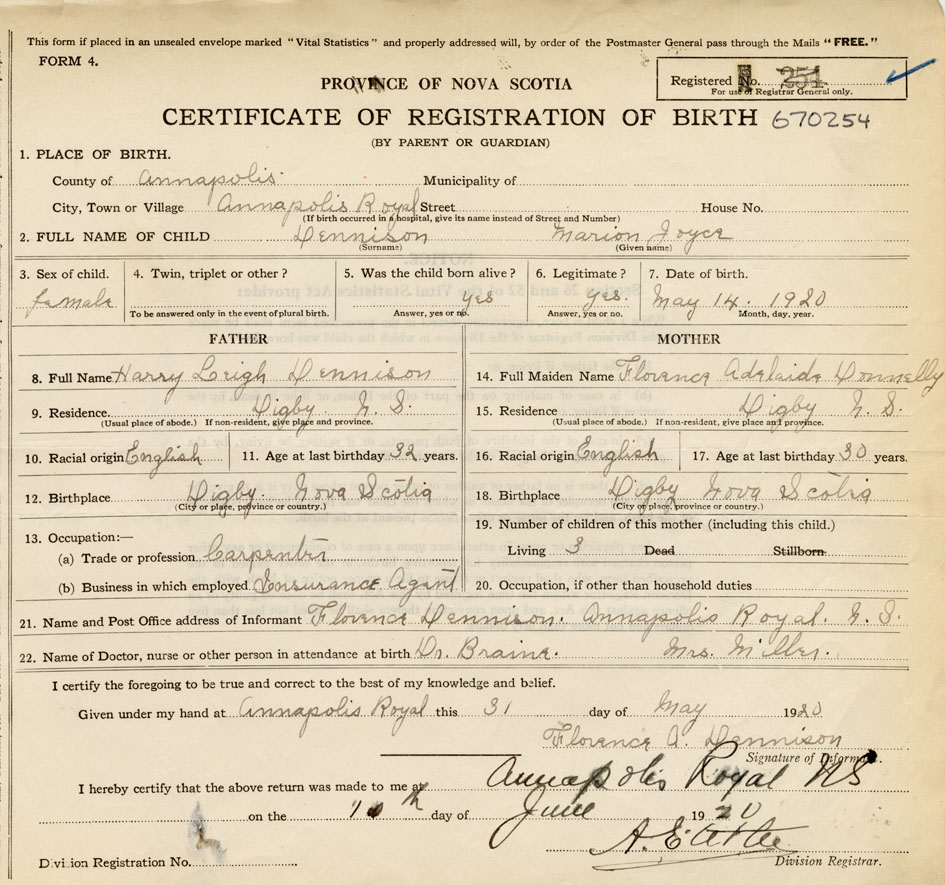 This form if placed in an unsealed envelope marked "Vital Statistics" and properly addressed will, by order of the Postmaster General pass through the Mails "FREE."
FORM 4.
PROVINCE OF NOVA SCOTIA
Registered No. 254
For use of Registrar General only.
CERTIFICATE OF REGISTRATION OF BIRTH 670254
(BY PARENT OR GUARDIAN)
1. PLACE OF BIRTH.
County of Annapolis Municipality of
City, Town or Village Annapolis Royal Street House No.
(If birth occurred in a hospital, give its name instead of Street and Number)
2. FULL NAME OF CHILD Dennison Marion Joyce
(Surname) (Given name)
3. Sex of child. 4. Twin, triplet or other? 5. Was the child born alive? 6. Legitimate? 7. Date of birth.
female yes yes. May 14. 1920
To be answered only in the event of plural birth. Answer, yes or no. Answer, yes or no. Month, day, year.
FATHER MOTHER
8. Full Name Harry Leigh Dennison 14. Full Maiden Name Florence Adelaide Donnelly
9. Residence. Digby N. S. 15. Residence Digby N. S.
(Usual place of abode.) If non-resident, give place and province. (Usual place of abode.) If non-resident, give place and province.
10. Racial origin English 11. Age at last birthday 32 years. 16. Racial origin English 17. Age at last birthday 30 years.
12. Birthplace Digby. Nova Scotia 18. Birthplace Digby Nova Scotia
(City or place, province or country.) (City or place, province or country.)
13. Occupation:— 19. Number of children of this mother (including this child.)
(a) Trade or profession Carpenter Living 3 Dead Stillborn
(b) Business in which employed Insurance Agent 20. Occupation, if other than household duties
21. Name and Post Office address of Informant Florence Dennison. Annapolis Royal. N. S.
22. Name of Doctor, nurse or other person in attendance at birth Dr. Braine. Mrs. Miller.
I certify the foregoing to be true and correct to the best of my knowledge and belief.
Given under my hand at Annapolis Royal this 31 day of May 1920
Florence A. Dennison
Signature of Informant.
I hereby certify that the above return was made to me at Annapolis Royal NS
on the 10th day of June 1920
A. E.
Division Registration No. Division Registrar.